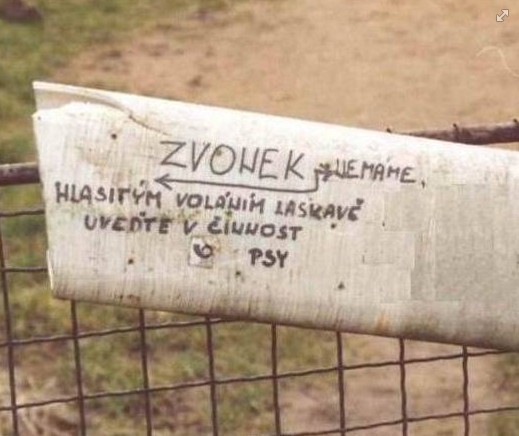 ZVONEK NEMÁME,
HLASITÝM VOLÁNÍM LASKAVĚ
UVEĎTE V ČINNOST
PSY